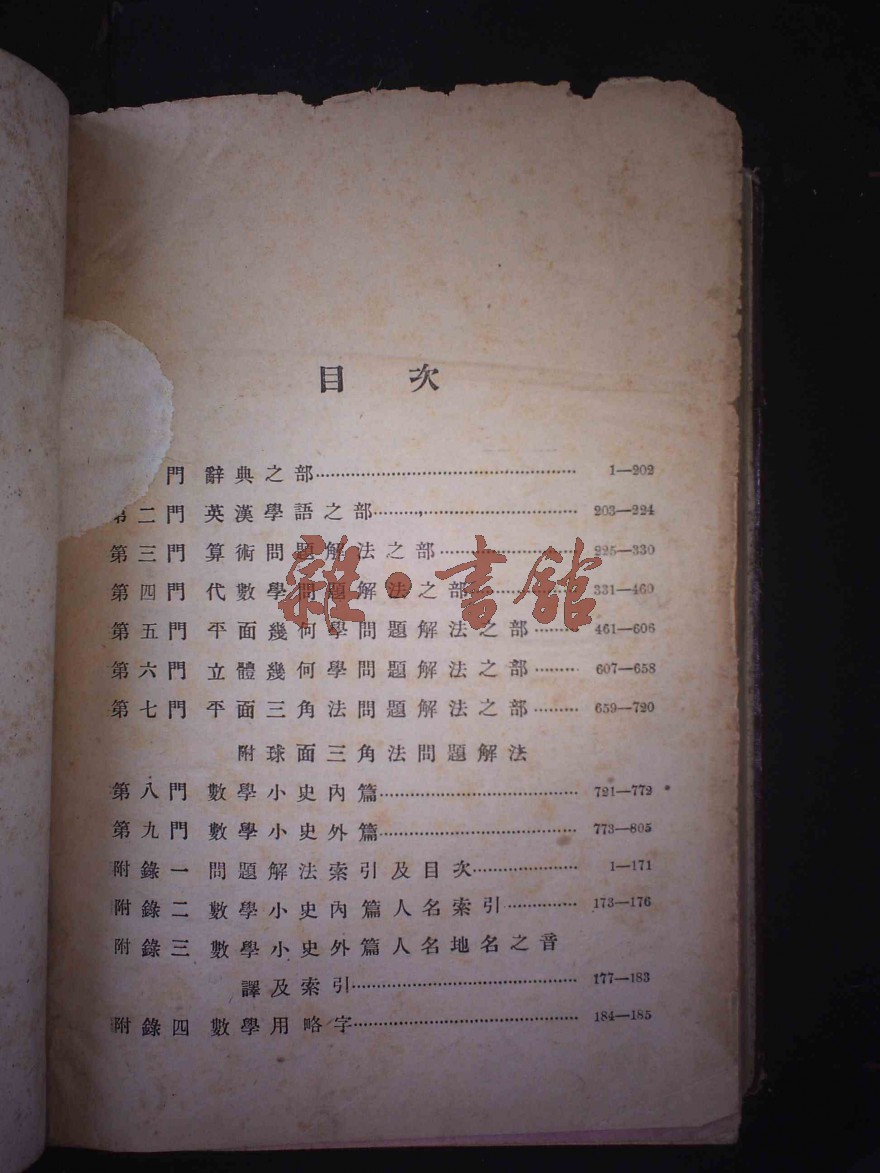 目次
門 辭典之部 1—202
第二門 英漢學語之部 203—224
第三門 算術問題解法之部 225—330
第四門 代數學問題解法之部 331—460
第五門 平面幾何學問題解法之部 461—606
第六門 立體幾何學問題解法之部 607—658
第七門 平面三角法問題解法之部 659—720
附球面三角法問題解法
第八門 數學小史內篇 721—772
第九門 數學小史外篇 773—805
附錄一 問題解法索引及目次 1—171
附錄二 數學小史內篇人名索引 173—176
附錄三 數學小史外篇人名地名之音
譯及索引 177—183
附錄四 數學用略字 184—185
雜·書館